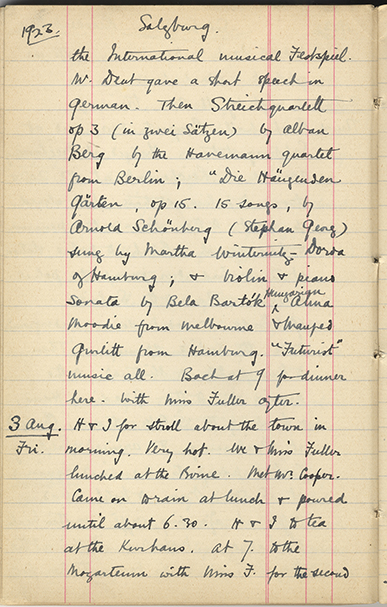 1923. Salzburg.
the International musical Festspiel.
W. Dent gave a short speech in
German. Then Streichquartett
op 3 (in zwei Sätzen) by Alban
Berg by the Havemann quartet
from Berlin; "Die Hängenden
Gärten, op 15. 15 songs, by
Arnold Schönberg (Stephan Georg)
sung by Martha Winternitz-Dorda
of Hamburg; & violin & piano
Sonata by Bela Bartók Hungarian Alma
Moodie from Melbourne & Manfred
Gurlitt from Hamburg. "Futurist"
music all. Back at 9 for dinner
here. With Miss Fuller after.
3 Aug. H & I for stroll about the town in
Fri. morning. Very hot. We & Miss Fuller
lunched at the Birne. Met Mr. Cooper.
Came on to rain at lunch & poured
until about 6.30. H & I to tea
at the Kurhaus. At 7. to the
Mozarteum with Miss F. for the second